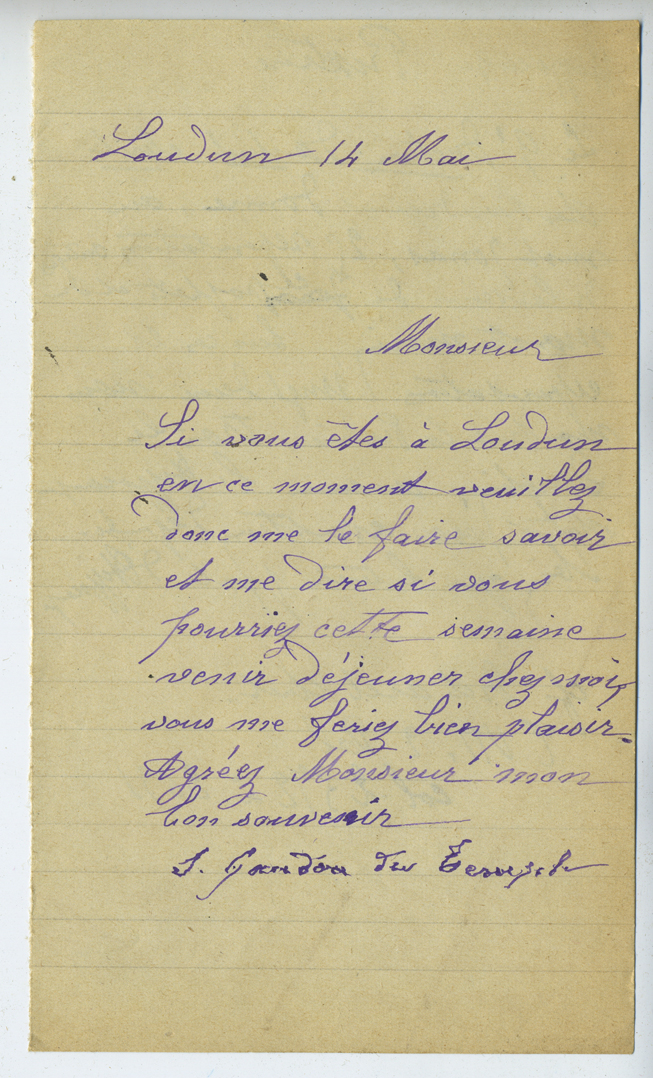 Loudun 14 Mai
Monsieur
Si vous êtes à Loudun
en ce moment veuillez
donc me le faire savoir
et me dire si vous
pourriez cette semaine
venir déjeuner chez moi,
vous me feriez bien plaisir.
Agréez Monsieur mon
bon souvenir
du Temple